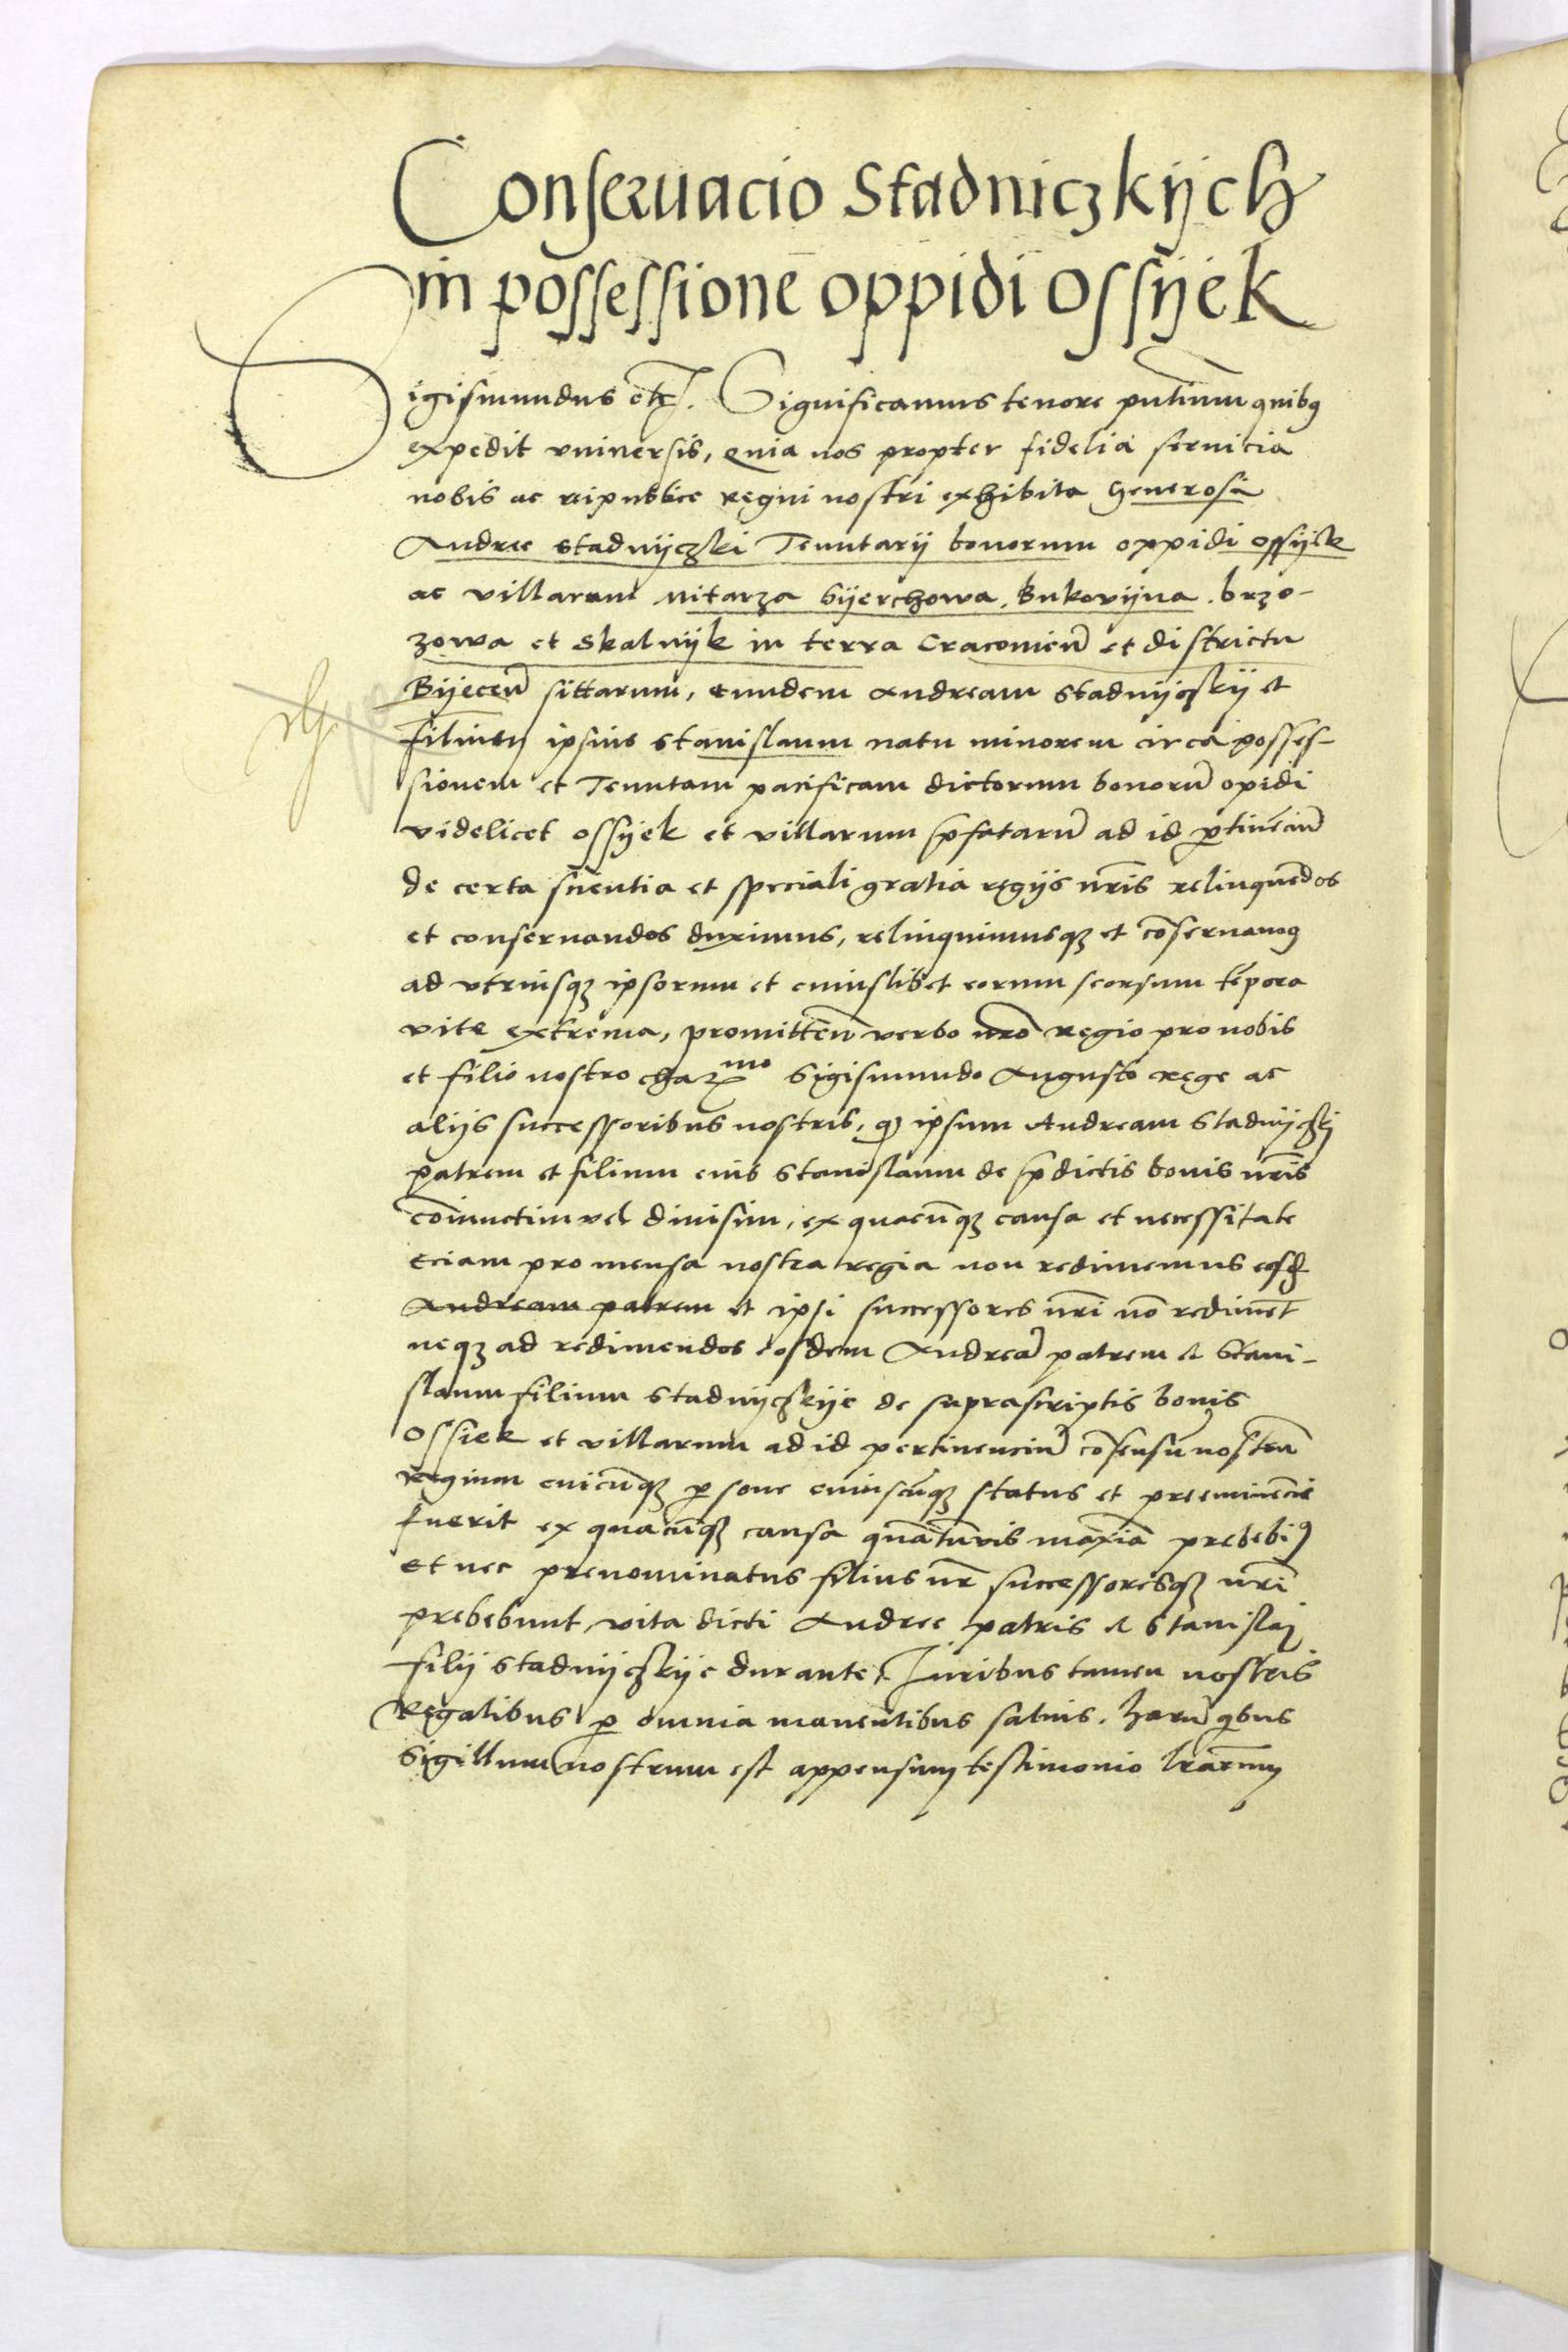 Conseruacio Stadniczkych
in possessionē oppidi Ossyek
Sigismundus etc. Significamus tenore pn̄tium quibꝯ
expedit vniuersis, Quia nos propter fidelia seruicia
nobis ac reipublice regni nostri exhibita Generosi
Andree Stadnyczki Tenutarij bonorum oppidi Ossyek
ac villarum Mitarza Byerchowa. Bukowyna. brzo-
zowa et Skalnyk in terra Cracouien̄ et districtu
Byecen̄ sittarum, eundem Andream Stadnyczky et
filium ipsius Stanislaum natu minorem circa posses-
sionem et Tenutam pacificam dictorum bonorū opidi
videlicet Ossyek et villarum p̄fatarū ad id ꝑtinēciū
de certa scientia et speciali gratia regijs nr̄is relinquēdos
et conseruandos duximus, relinquimusqꝫ et cōseruamꝯ
ad vtriusqꝫ ipsorum et cuiuslibet eorum seorsum tēpora
vite extrema, promitten̄ verbo nr̄o regio pro nobis
et filio nostro charmo Sigismundo Augusto rege ac
alijs successoribus nostris, qꝫ ipsum Andream Stadnyczky
patrem et filium eius Stanislaum de p̄dictis bonis nr̄is
cōiunctim vel diuisim, ex quacūqꝫ causa et necessitate
eciam pro mensa nostra regia non redimemus eosd̄
Andream patrem et ipsi successores nr̄i nō rediment
neqꝫ ad redimendos eosdem Andreā patrem et Stani-
slaum filium Stadnyczkye de suprascriptis bonis
Ossiek et villarum ad id pertinenciū cōsensū nostrū
regium cuicūqꝫ ꝑsone cuiuscūqꝫ status et preeminēcie
fuerit ex quacūqꝫ causa quātūuis maxīa prebebiꝯ
et nec prenominatus filius nr̄ successoresqꝫ nr̄i
prebebunt, vita dicti Andree patris et Stanislai
filij Stadnyczkye durante. Iuribus tamen nostris
Regalibus ꝑ omnia manentibus saluis. harū qͥbus
Sigillum nostrum est appensum testimonio lr̄arum